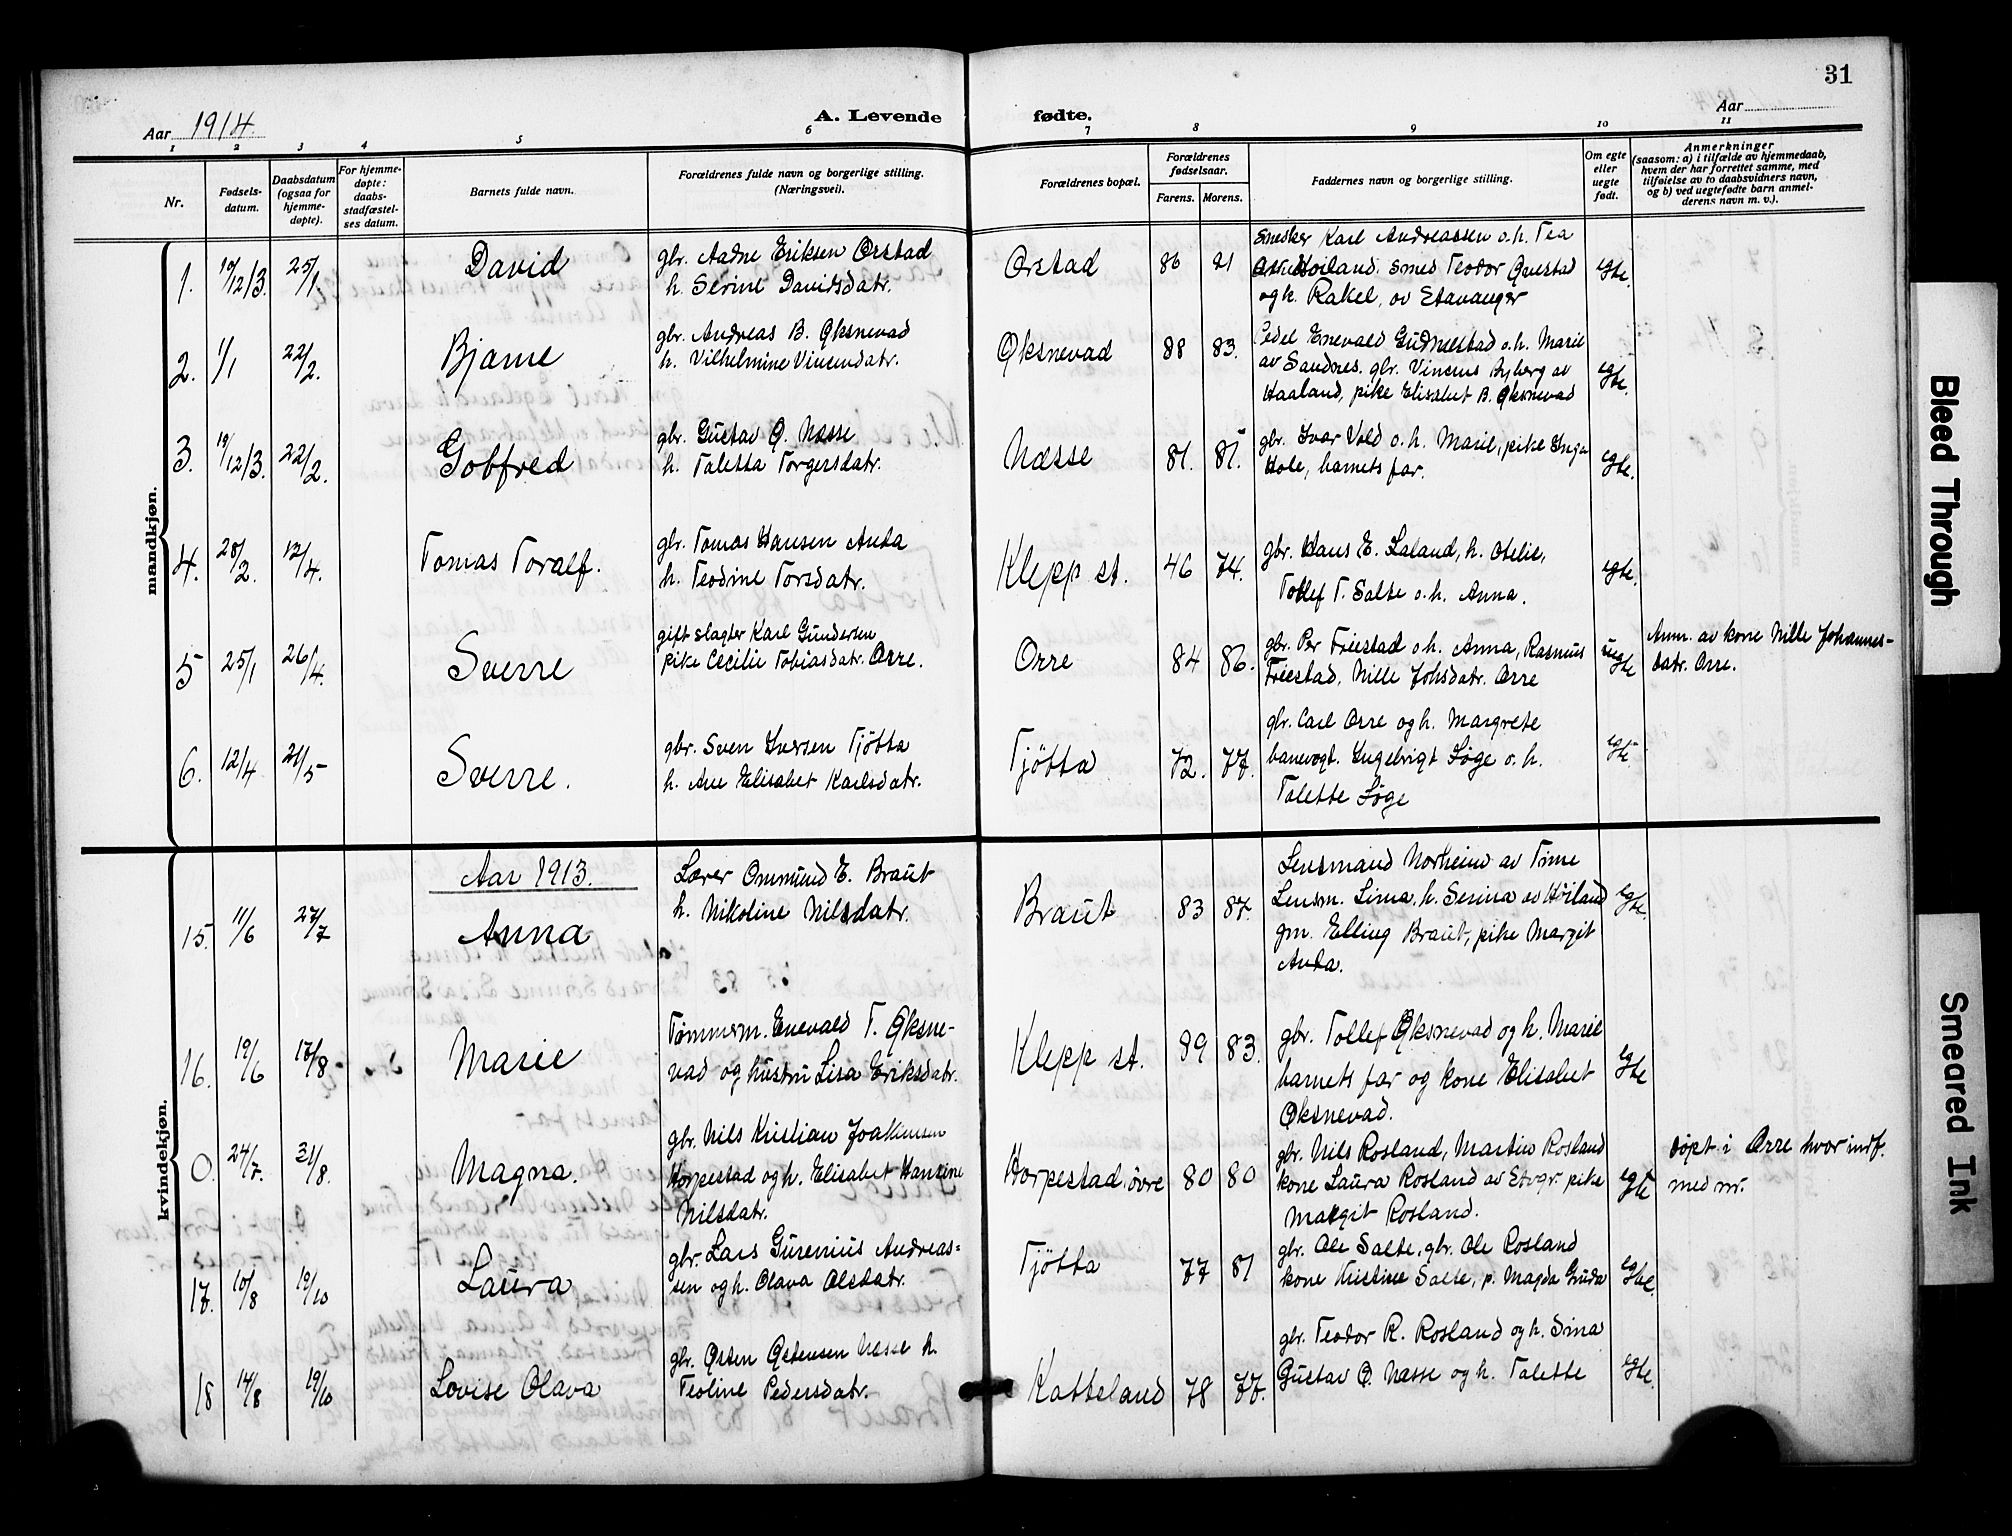 31
Aar 1914.
A. Levende fødte.
Aar
1 2 3 4 5 6 7 8 9 10 11
Nr.
Fødsels-
datum.
Daabsdatum
(ogsaa for
hjemme-
døpte).
For hjemme-
døpte:
daabs-
stadfæstel-
ses datum.
Barnets fulde navn.
Forældrenes fulde navn og borgerlige stilling.
(Næringsvei).
Forældrenes bopæl.
Forældrenes
fødselsaar.
Farens. Morens.
Faddernes navn og borgerlige stilling.
Om egte
eller
uegte
født.
Anmerkninger
(saasom: a) i tilfælde av hjemmedaab,
hvem der har forrettet samme, med
tilføielse av to daabsvidners navn,
og b) ved uegtefødte barn anmel-
derens navn m. v.).
mandkjøn.
1. 19/12/3. 25/1 David
gbr. Aadne Eriksen Orstad
h. Serine Davidsdatr.
Orstad 86 91
Snedker Karl Andreassen o.h. Tea
Hoiland. Smed Teodor Qvestad
og h. Rakel, av Stavanger
egte.
2. 1/1 22/2. Bjarne
gbr. Andreas B. Øksnevad
h. Vilhelmine Vincendatr.
Øksnevad 88 83.
Pedel Enevald Gudmestad o.h. Marie
av Sandnes. gbr. Vincens Ryberg av
Haaland, pike Elisabet B. Øksnevad
egte.
3. 19/12/3. 22/2. Gobfred
gbr. Gustav Ø. Næsse
h. Taletta Torgersdatr.
Næsse 81. 81.
gbr. Ivar Vold o.h. Marie, pike Inga
Hole, barnets far.
egte.
4. 28/2. 12/4. Tomas Toralf.
gbr. Tomas Hansen Anda
h. Teodine Torsdatr.
Klepp st. 46 74.
gbr. Hans E. Laland, h. Otelie,
Tollef T. Salte o.h. Anna.
egte.
5 25/1 26/4. Sverre
gift slagter Karl Gundersen
pike Cecilie Tobiasdatr. Orre.
Orre 84 86.
gbr. Per Friestad o.h. Anna, Rasmus
Friestad, Nille Johsdatr. Orre
uegte
Anm. av kone Nille Johannes-
datr. Orre.
6. 12/4 21/5 Sverre.
gbr. Sven Iversen Tjøtta
h. Ane Elisabet Karlsdatr.
Tjøtta 72. 77.
gbr. Carl Orre og h. Margrete
banevogt. Ingebrigt Løge o.h.
Talette Løge
egte
kvindekjøn.
Aar 1913.
15. 11/6 27/7 Anna
Lærer Ommund E. Braut
h. Nikoline Nilsdatr.
Braut 83 87.
Lensmand Norheim av Time
Lensm. Lima, h. Serina av Höiland
gm. Elling Braut, pike Margit
Anda.
egte.
16. 19/6 17/8 Marie
Tømmerm. Enevald T. Øksne-
vad og hustru Lisa Eriksdatr.
Klepp st. 89 83.
gbr. Tollef Øksnevad og h. Marie
barnets far og kone Elisabet
Øksnevad.
egte
0. 24/7. 31/8. Magna.
gbr. Nils Kristian Joakimsen
Horpestad og h. Elisabet Hansine
Nilsdatr.
Horpestad, övre 80 80
gbr. Nils Rosland, Martin Rosland
kone Laura Rosland av Stvgr. pike
Margit Rosland.
egte
døpt i Orre hvor indf.
med nr.
17. 10/8 19/10 Laura
gbr. Lars Gurenius Andreas-
sen og h. Olava Olsdatr.
Tjøtta 77 81
gbr. Ole Salte, gbr. Ole Rosland
kone Kristine Salte, p. Magda Gruda
egte.
18 14/8 19/10 Lovise Olava
gbr. Østen Østensen Næsse h.
Teoline Pedersdatr.
Katteland 78 77.
gbr. Teodor R. Rosland og h. Sina
Gustav Ø. Næsse og h. Talette
egte.
Bleed Through
Smeared Ink